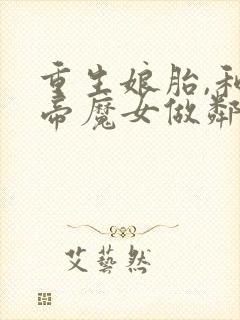 重生娘胎,和
帝魔女做鄰
艾藝然